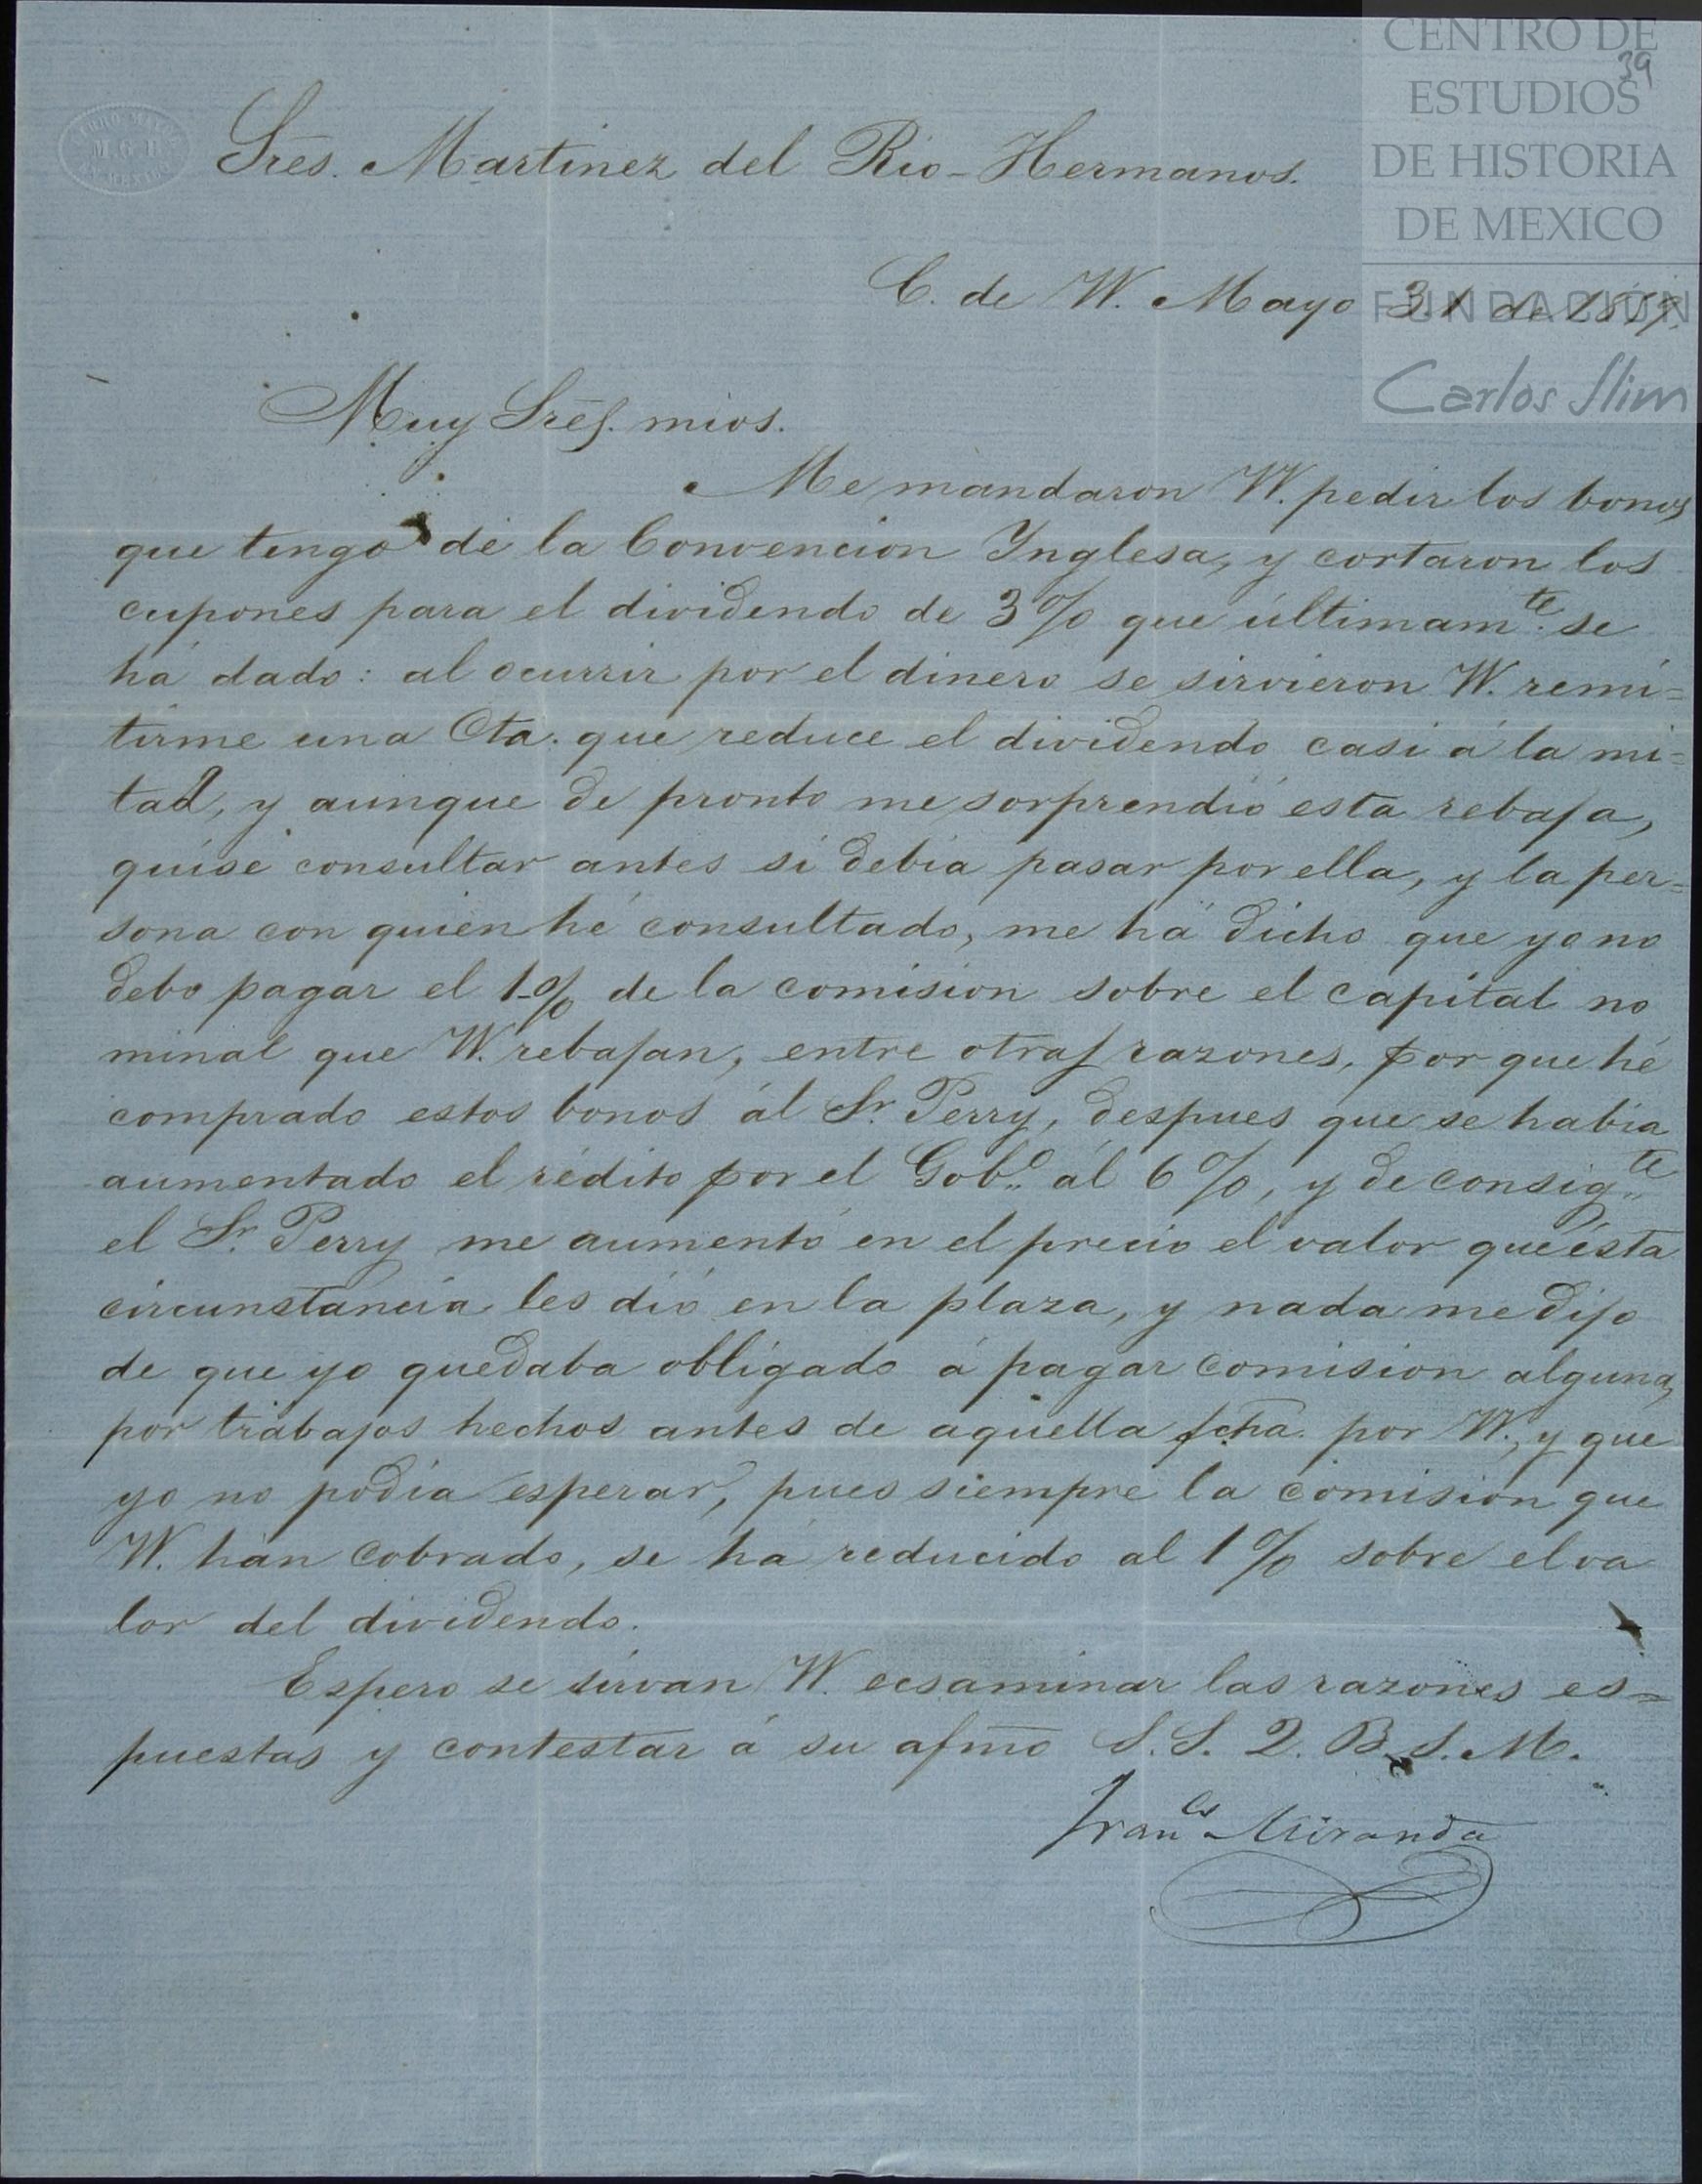 CENTRO DE
39
ESTUDIOS
DE HISTORIA
DE MEXICO
FUNDACIÓN
Carlos Slim
M. G. R.
Sres. Martinez del Rio-Hermanos.
C. de W. Mayo 31 de
Muy Sres. mios.
Me mandaron W. pedir los bonos
que tengo de la Convencion Ynglesa, y cortaron los
cupones para el dividendo de 3% que últimamte. se
há dado: al ocurrir por el dinero se sirvieron W. remi=
tirme una Cta. que reduce el dividendo casi á la mi=
tad, y aunque de pronto me sorprendió esta rebaja,
quise consultar antes si debia pasar por ella, y la per=
sona con quien hé consultado, me há dicho que yo no
debo pagar el 1% de la comision sobre el capital no
minal que W. rebajan, entre otras razones, por que hé
comprado estos bonos ál Sr. Perry, despues que se habia
aumentado el rédito por el Gobo. ál 6%, y de consigte.
el Sr. Perry me aumentó en el precio el valor que ésta
circunstancia les dió en la plaza, y nada me dijo
de que yo quedaba obligado á pagar comision alguna,
por trabajos hechos antes de aquella fcha. por W., y que
yo no podia esperar, pues siempre la comision que
W. hán cobrado, se há reducido al 1% sobre el va
lor del dividendo.
Espero se sirvan W. ecsaminar las razones es=
puestas y contestar á su afmo S. S. Q. B. S. M.
Franco. Miranda